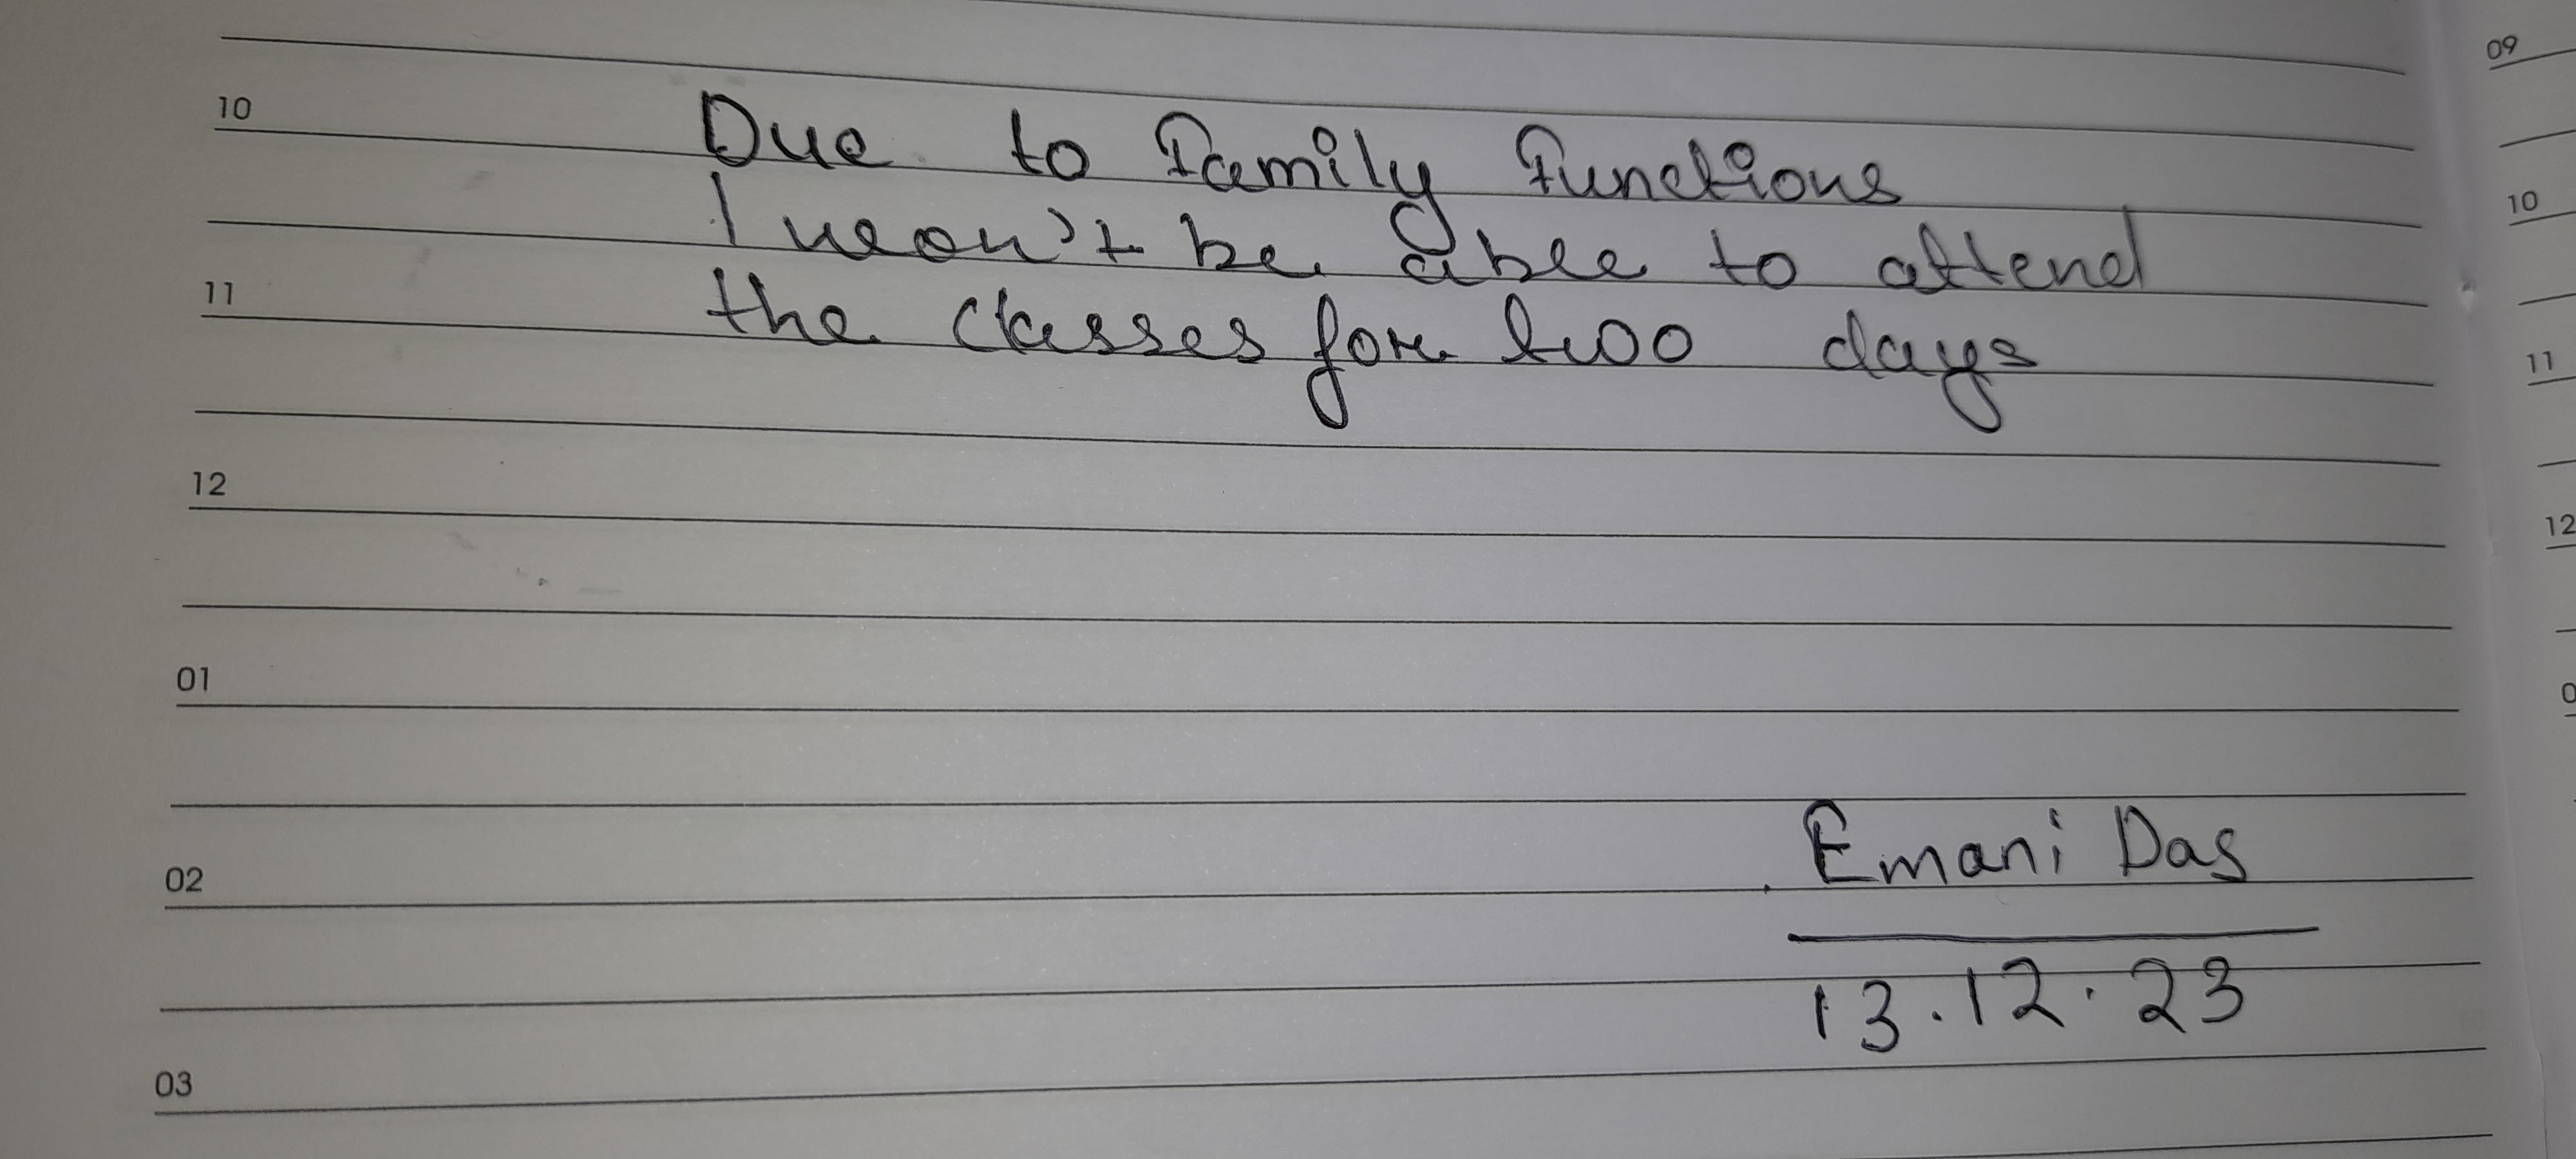 09
10 Due to Family Functions
I won't be able to attend
10
11 the classes for two days
11
12
12
01
0
02 Emani Das
13.12.23
03